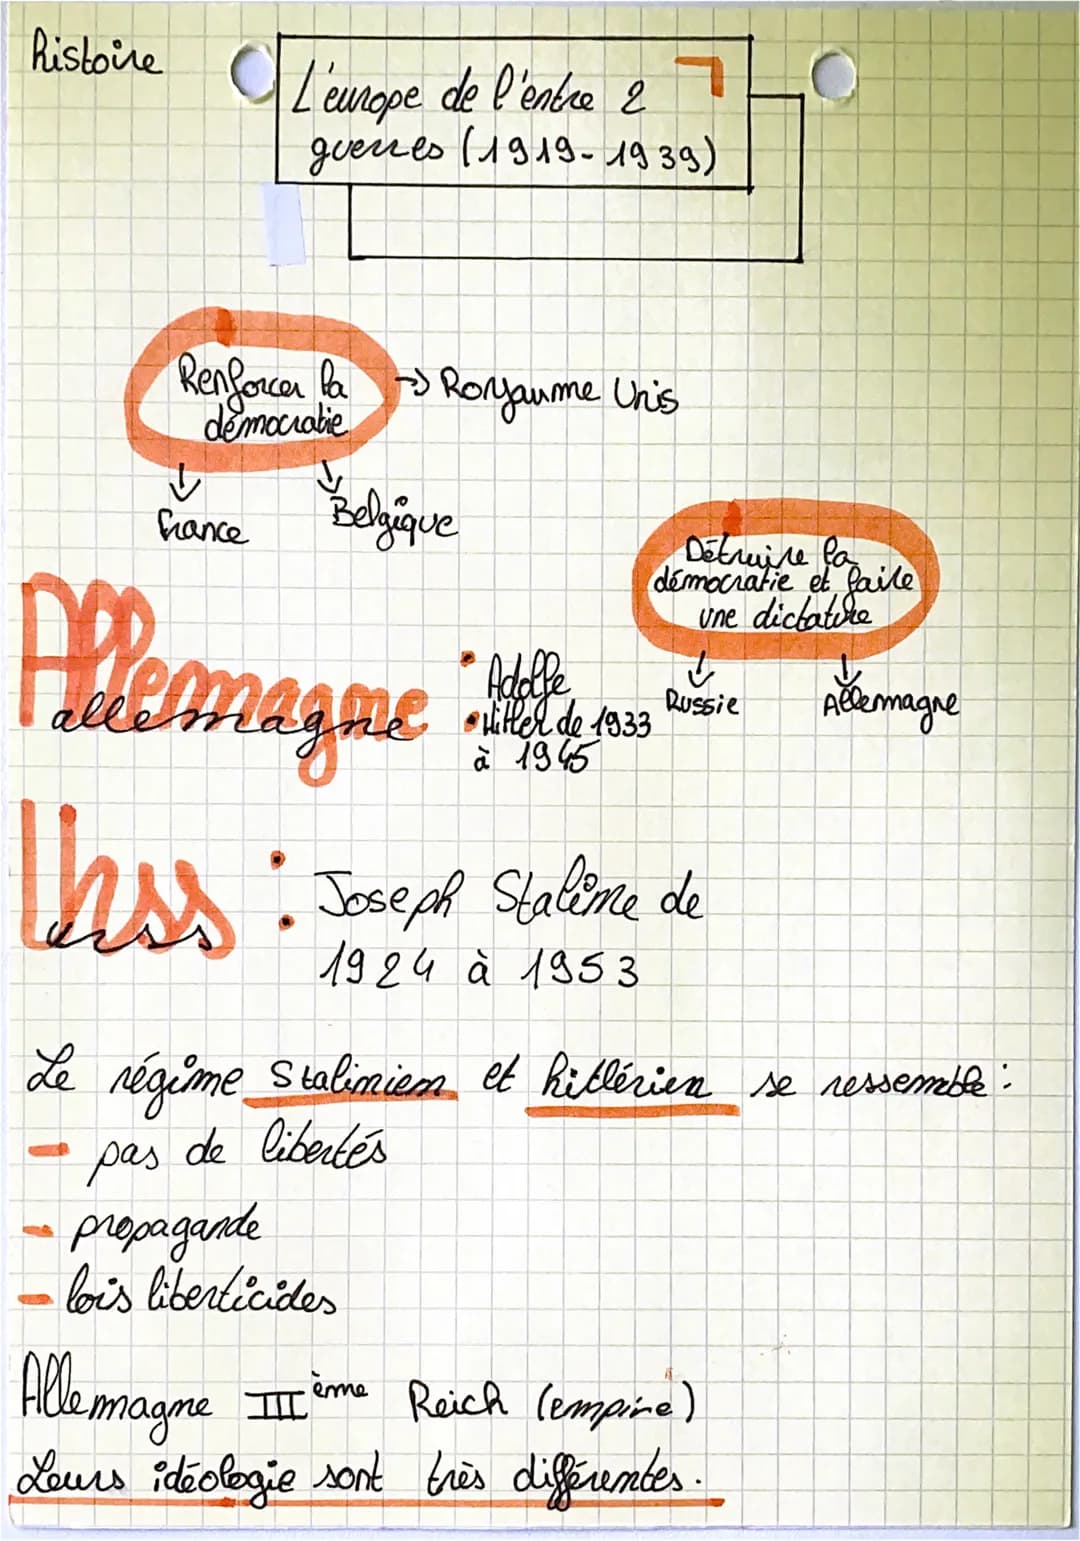 histoire
L'éurope de l'éntre 2
guerres (1919-1939)
Renforcer la
démocratie
→ Royaume Unis
France
Belgique
Détruire la
démocratie et faire
une dictature
Russie
Allemagne
Allemagne
allemagne
: Adolfe
Hitler de 1933
à 1945
Urss :
urss
Joseph Staline de
1924 à 1953
Le régime Stalinien et hitlérien se ressemble :
- pas de libertés
- propagande
- lois liberticides
Allemagne III ème Reich (empire)
Leurs idéologie sont très différentes.